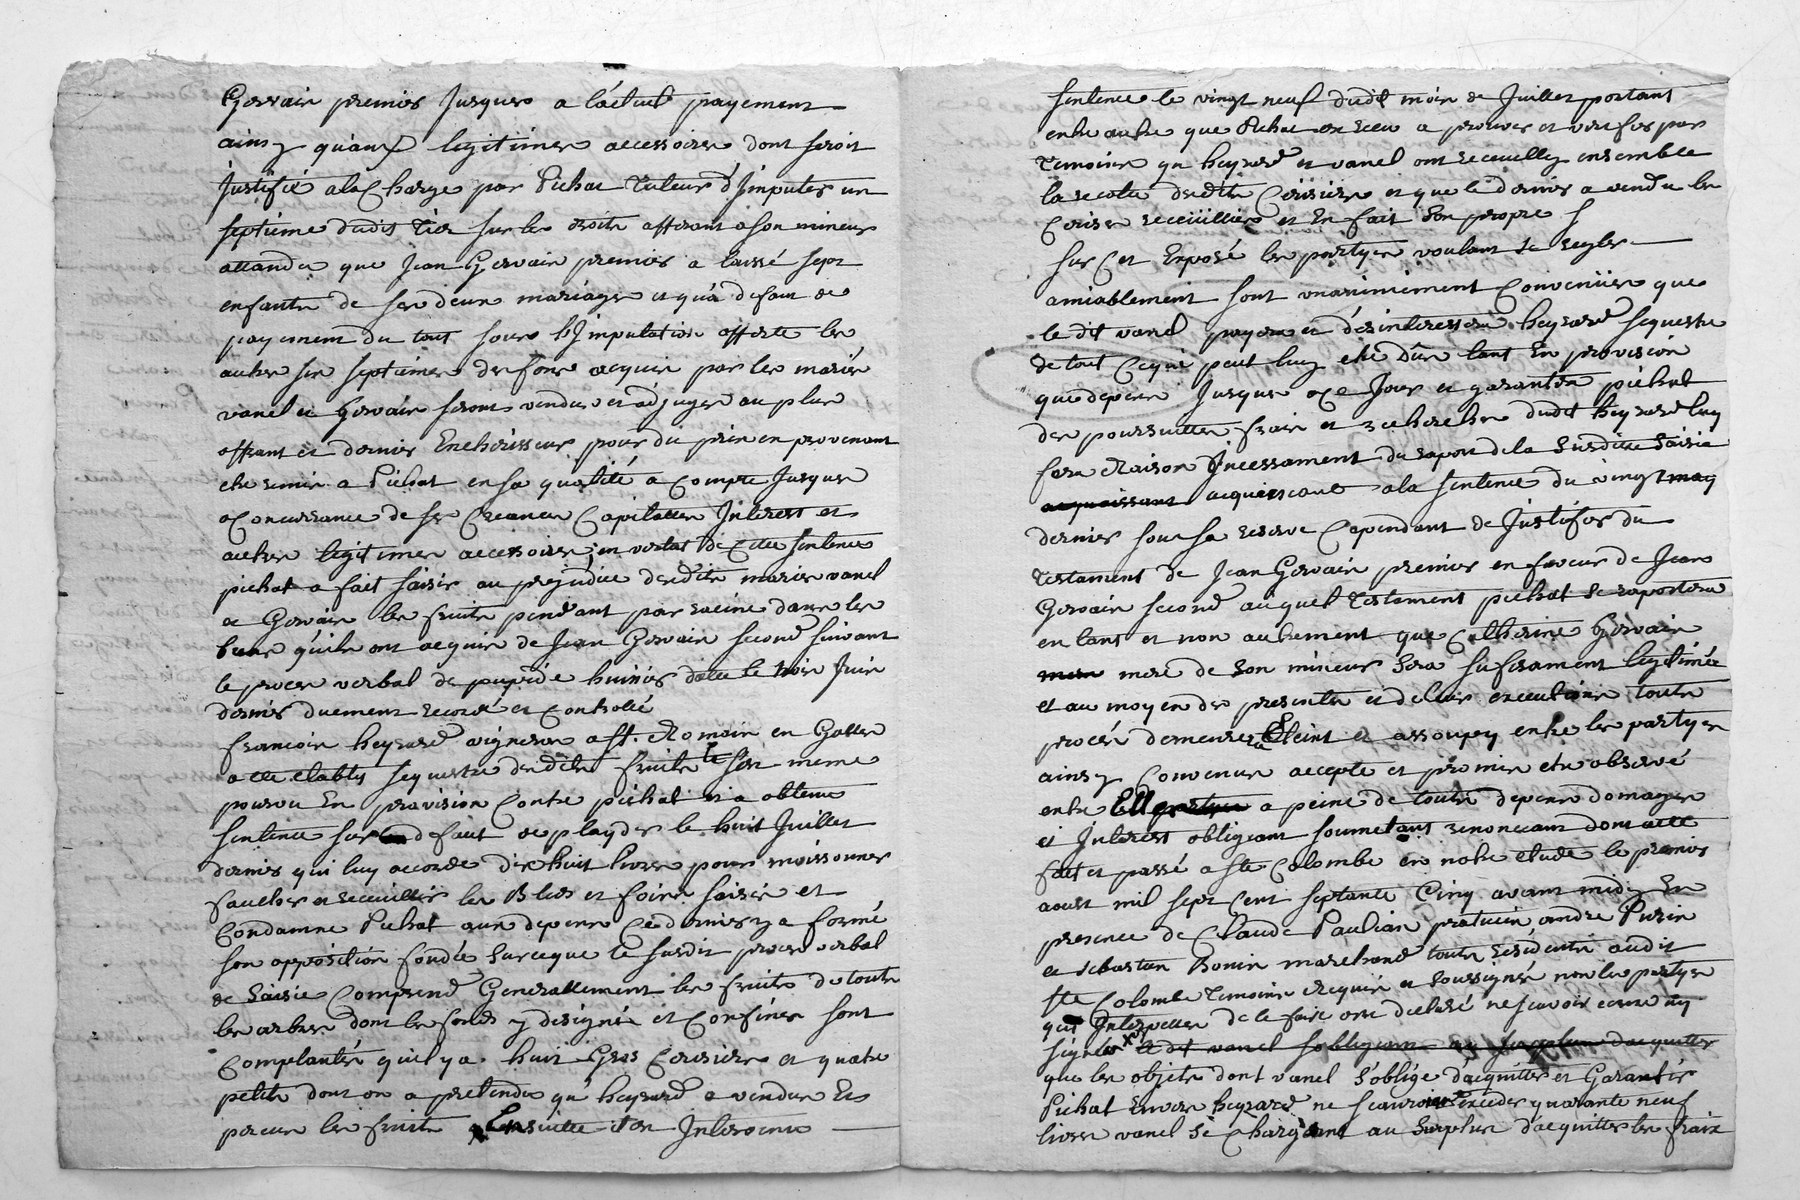 Gervais premier Jusques a láctuel payement
ainsy qu'aux legitimes accessoires dont seroit
Justifié a la Charge par Pichat Tuteur d'Imputer un
septieme dudit Tier sur les droits afferant a son mineur
attandu que Jean Gervais premier a laissé sept
enfants de ses deux mariages et qu'a defaut de
payement du tout sous l'Imputation offerte les
autres six septiémes des fonds acquis par les mariés
vanel et Gervais seront vendus et adjugés au plus
offrant et dernier Encherisseur pour du prix en provenant
etre remis a Pichat en sa qualité a compte Jusques
a Concurrance de ses Creances Capitalles Interest et
autres legitimes accessoires, en vertu de Cette sentence
pichat a fait saisir au prejudice desdits mariés vanel
et Gervais les fruits pendant par racine dans les
fonds qu'ils ont acquis de Jean Gervais second suivant
le proces verbal de huissier datté le trois Juin
dernier duement recordé et Controllé
francois heyrard vigneron a St. Romain en Galles
a eté etably sequestre desdits fruits le sien meme
pourvu En provision Contre pichat et a obtenu
sentence sur defaut de playder le huit Juillet
dernier qui luy accorde dix huit livres pour moissonner
faucher et receuillir les Bleds et foins saisis et
Condamne Pichat aux depens Ce dernier y a formé
son opposition fondée sur ceque le susdit proces verbal
de Saisie Comprend Generallement les fruits de touts
les arbres dont les fonds y designés et Confinés sont
Complantés quil y a huit Gros Cerisiers et quatre
petits dont on a pretendu qu'heyrard a vendu Et
percu les fruits Ensuitte d'un Interlocutoire
sentence le vingt neuf dudit mois de Juillet portant
entre autre que Pichat en receu a prouver et verifier par
Temoins qu'heyrard et vanel ont receuilly ensemble
la recolte desdits Cerisiers et que le dernier a vendu les
Cerises receüillies et En fait Son propre
Sur Cet Exposé les partyes voulant se regler
amiablement sont unanimement Convenües que
le dit vanel payera et désinteressera heyrard sequestre
de tout Cequi peut luy etre dû tant En provision
que depens Jusques a Ce Jour et garantira pichat
des poursuittes frais et recherches dudit heyrard luy
fera Raison Incessament du raport de la Susditte Saisie
acquiessant acquiescant a la sentence du vingt may
dernier sous sa reserve Cependant de Justifier du
Testament de Jean Gervais premier en faveur de Jean
Gervais second auquel Testament pichat se raportera
en tant et non autrement que Catherine Gervais
mere de son mineur sera sufisament legitimée
et au moyen des presentes et de leur execution touts
procés demeurera Eteint et assoupy entre les partyes
ainsy Convenu accepté et promis etre observé
entre Elles a peine de touts depens domages
et Interest obligeant soumetant renonceant dont acte
fait et passé a ste Colombe en notre etude le premier
aoust mil sept Cent septante Cinq avant midy En
presence de Claude Paulian praticien andre Pupin
et sebastien Bonin marchand touts residents audit
ste Colombe Temoins Requis et soussignés non les partyes
qui Interpellés de le faire ont declaré ne scavoir ecrire ny
signer X le dit vanel sobligeant au surplus dacquitter
que les objets dont vanel s'oblige dacquitter et Garantir
Pichat Envers heyrard ne scauroient exceder quarante neuf
livres vanel se Chargeant au surplus d'acquitter les fraix